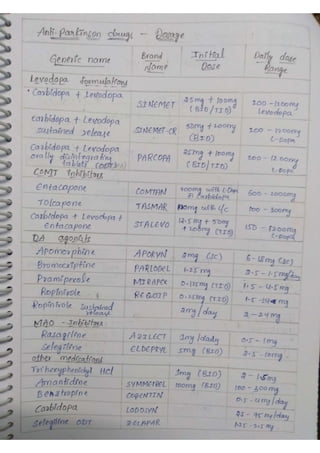 Anti-Parkinson drugs - Dosage
Generic name Brand name Initial Dose Daily dose Range
Levodopa formulations
• Carbidopa + Levodopa SINEMET 25mg + 100mg (BID/TID) 300-1200mg Levodopa
Carbidopa + Levodopa sustained release SINEMET-CR 50mg + 200mg (BID) 200 - 1200mg
Carbidopa + Levodopa orally disintegrating tablets PARCOPA 25mg + 100mg (BID/TID) 300-1200mg
COMT Inhibitors
Entacapone COMTAN 200mg with 600-1600mg
Tolcapone TASMAR 100mg with L/C 300-600mg
Carbidopa + Levodopa + entacapone STALEVO 12.5mg + 50mg + 200mg (TID) 150-1200mg
DA agonists
Apomorphine APOKYN 2mg (SC) (SC)
Bromocriptine PARLODEL 1.25mg
Pramipexole MIRAPEX 0.125mg (TID) 1.5-4.5mg
Ropinirole REQUIP 0.25mg (TID) mg
Ropinirole sustained release 2mg/day 2-24mg
MAO - Inhibitors
Rasagiline AZILECT 1mg/daily 0.5-1mg
Selegiline ELDEPRYL 5mg (BID) 2.5-10mg
other medications
Trihexyphenidyl HCl 1mg (BID) 2-15mg
Amantidine SYMMETREL 100mg (BID) 100-300mg
Benztropine COGENTIN mg/day
Carbidopa LODOSYN 25-75mg/day
Selegiline ODT ZELAPAR 1.25-2.5mg